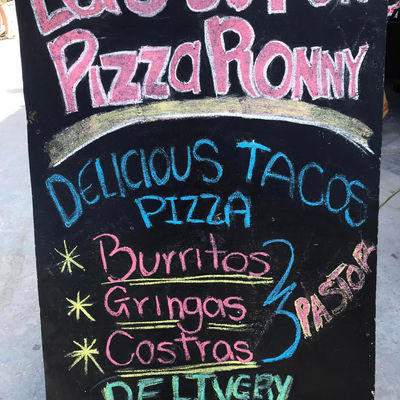 Pizza Ronny
DELICIOUS TACOS
PIZZA
Burritos
Gringas
Costras
PASTOR
DELIVERY